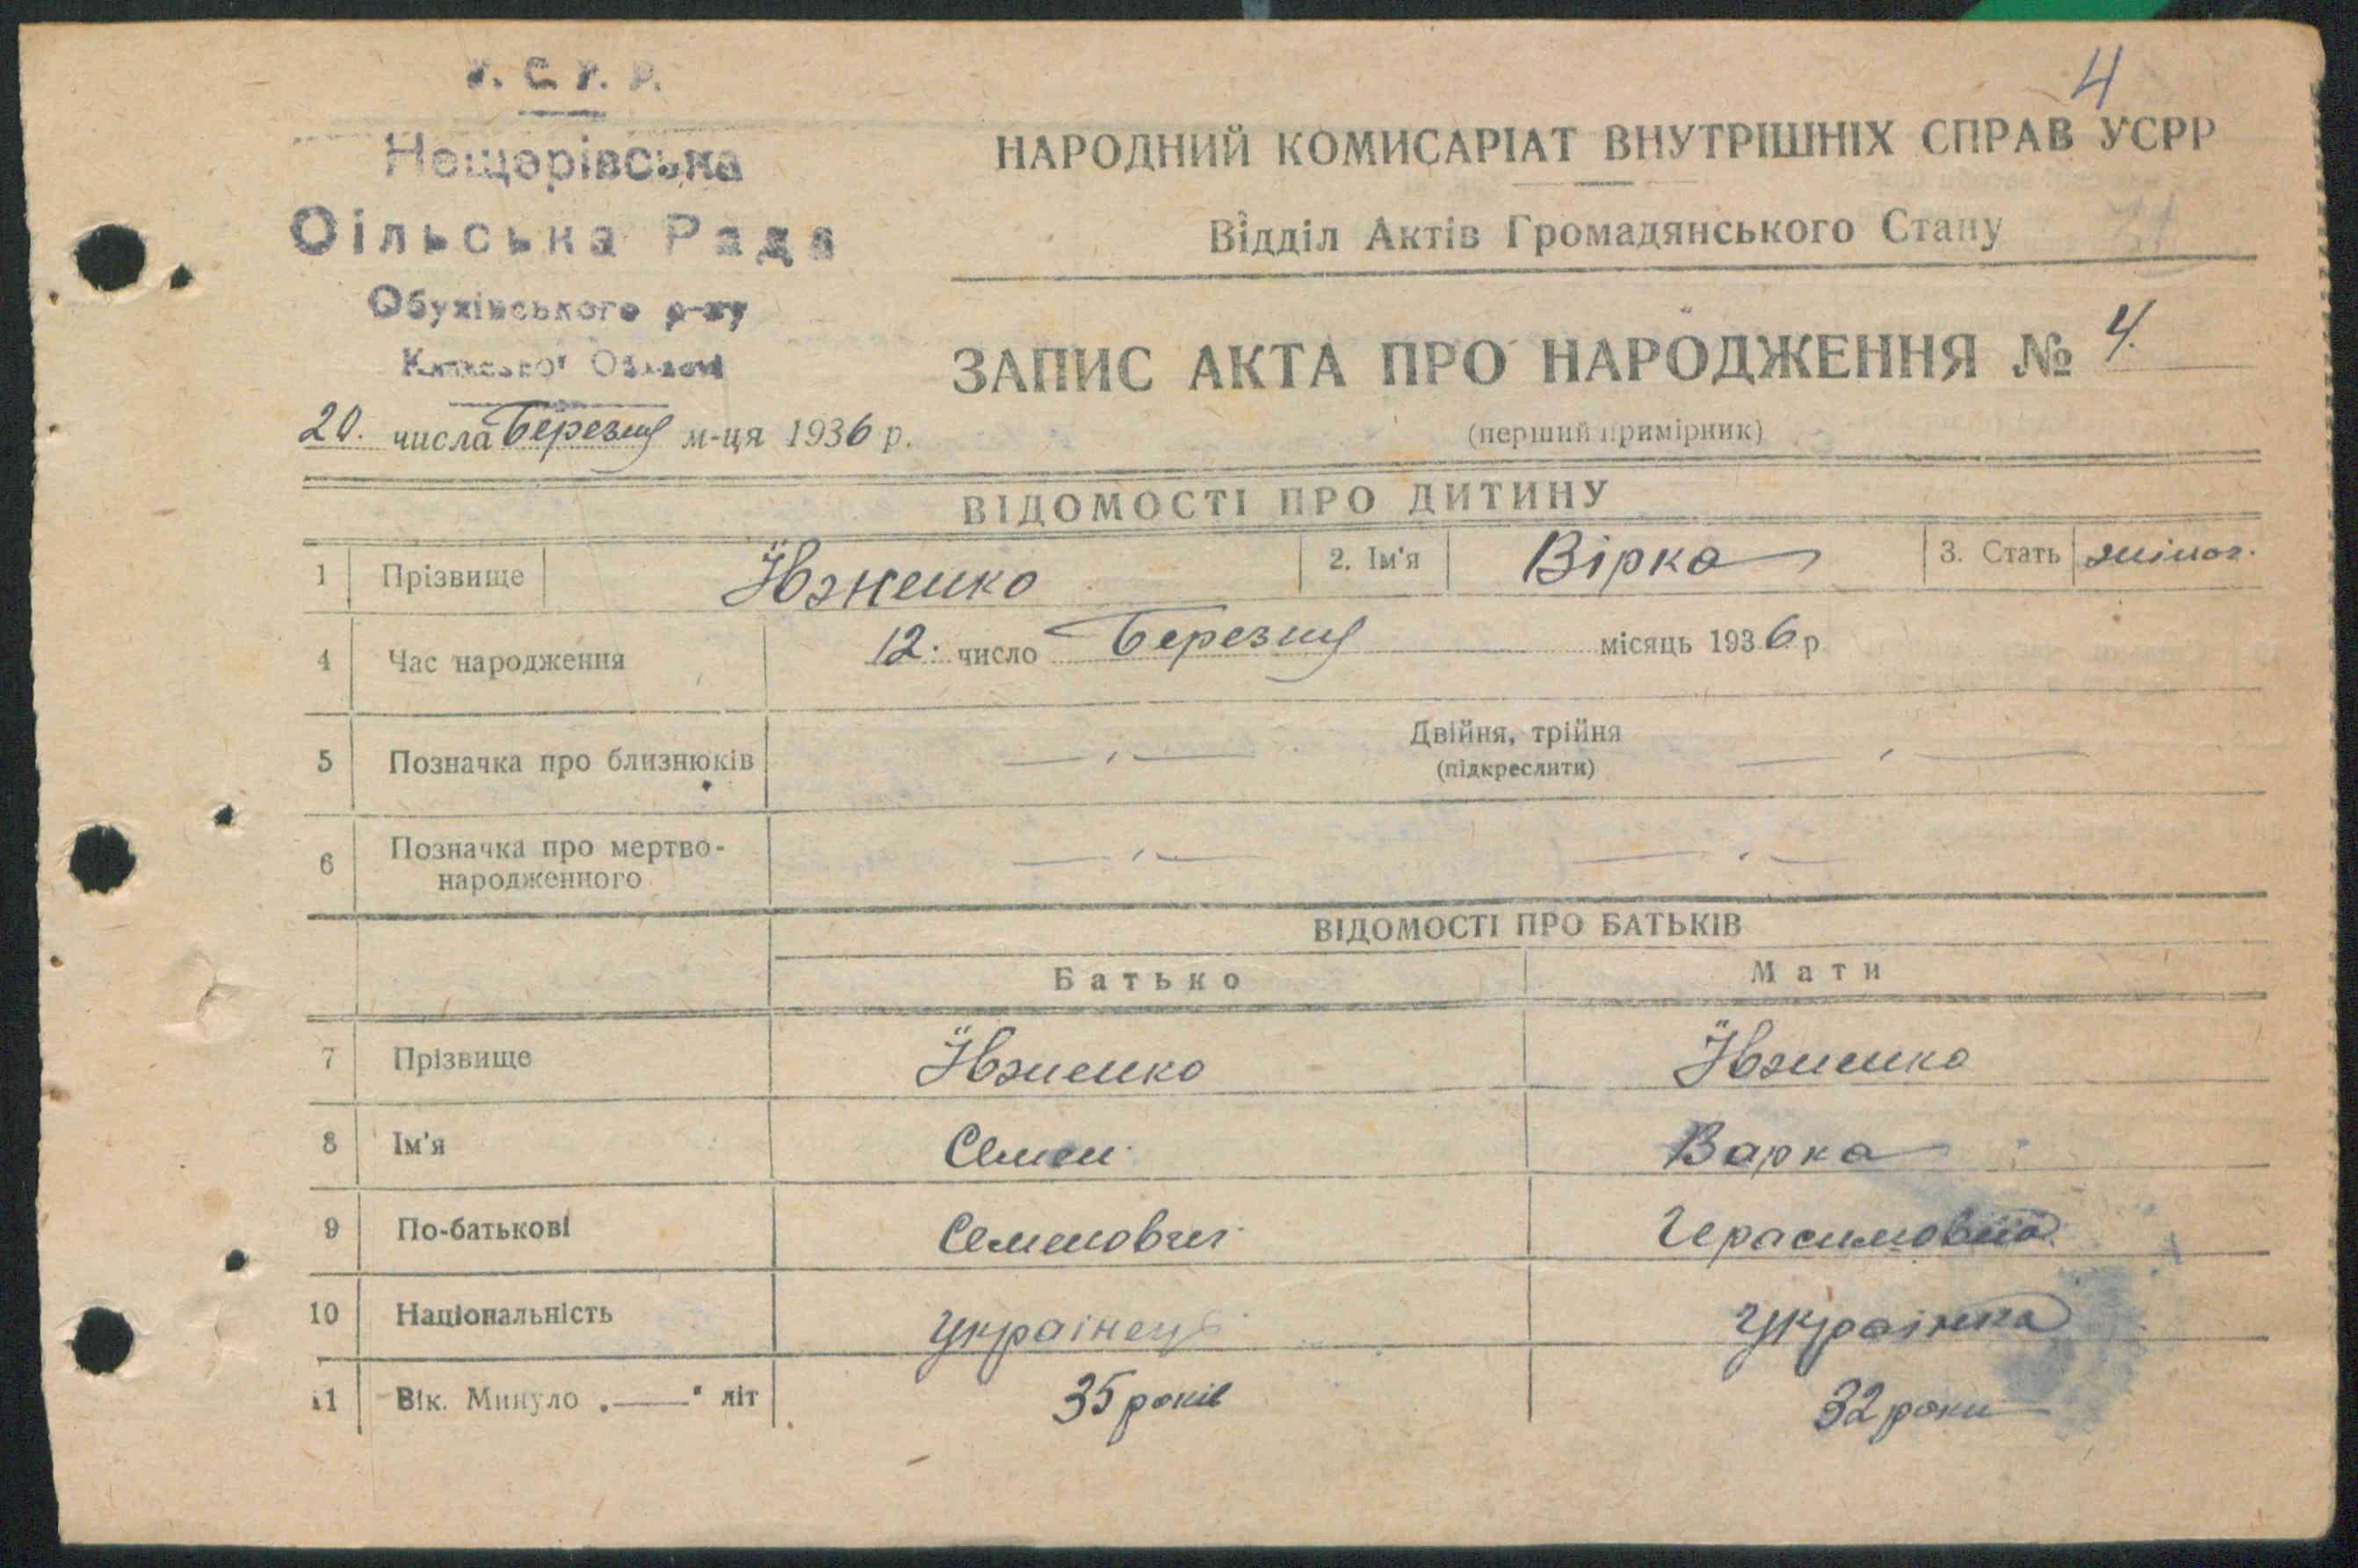 4
У. С. Р. Р.
Нещерівська
Сільська Рада
Обухівського р-ну
Київської Області
НАРОДНИЙ КОМИСАРІАТ ВНУТРІШНІХ СПРАВ УСРР
Відділ Актів Громадянського Стану
ЗАПИС АКТА ПРО НАРОДЖЕННЯ № 4.
(перший примірник)
20. числа Березня м-ця 1936 р.
ВІДОМОСТІ ПРО ДИТИНУ
1 Прізвище Їзненко 2. Ім'я Вірка 3. Стать жіноч.
4 Час народження 12. число Березня місяць 1936 р
5 Позначка про близнюків — „ — Двійня, трійня — „ —
(підкреслити)
6 Позначка про мертво- — „ — — „ —
народженного
ВІДОМОСТІ ПРО БАТЬКІВ
Батько Мати
7 Прізвище
8 Ім'я Семен Варка
9 По-батькові Семенович Герасимовна
10 Національність українець українка
11 Вік. Минуло „——“ літ 35 років 32 роки